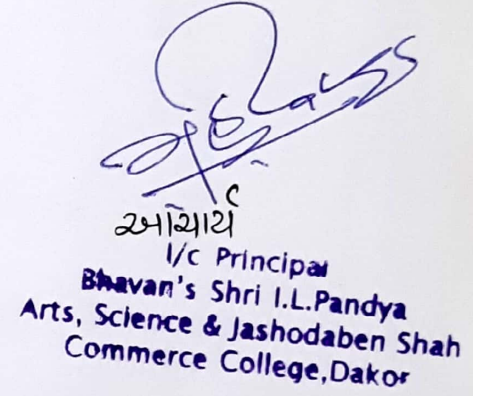 આચાર્ય
I/c Principal
Bhavan's Shri I.L.Pandya
Arts, Science & Jashodaben Shah
Commerce College,Dakor